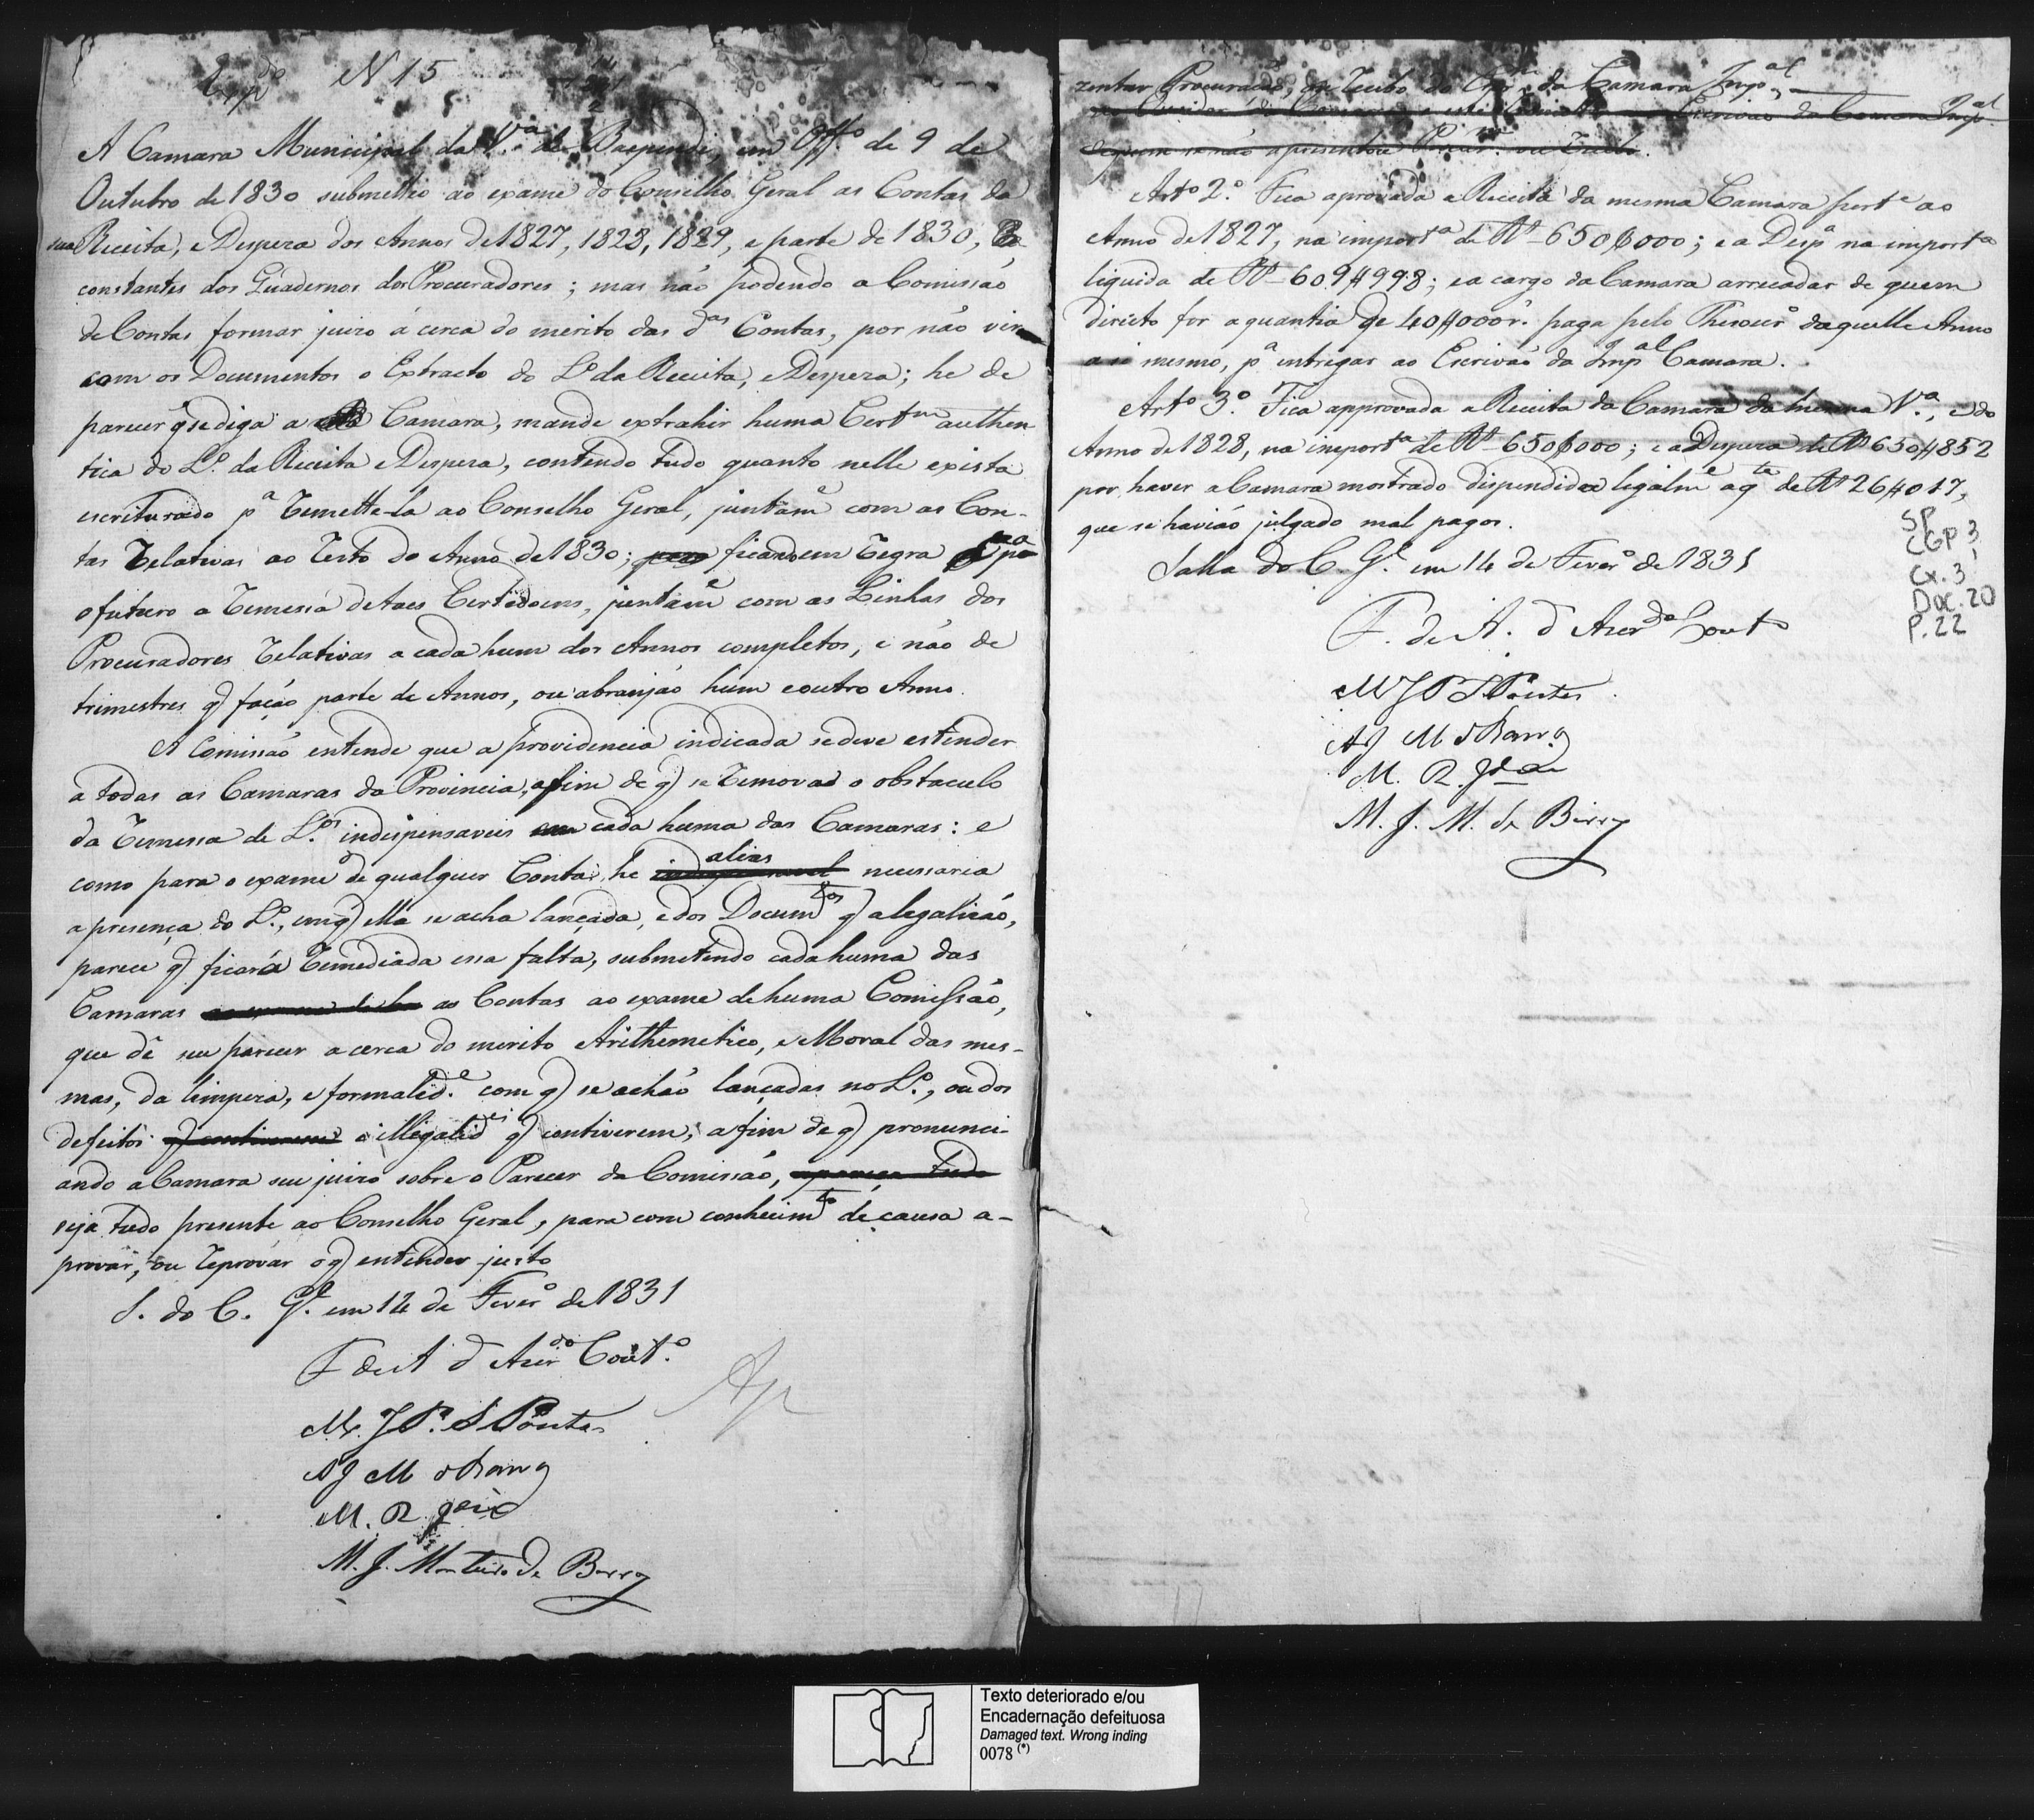 Exp.do N 15
A Camara Municipal da V.a de Baependi, em Off.o de 9 de
Outubro de 1830 submetteo ao exame do Conselho Geral as Contas da
sua Receita, e Despeza dos Annos de 1827, 1828, 1829, e parte de 1830,
constantes dos Quadernos dos Procuradores; mas não podendo a Comissão
de Contas formar juizo á cerca do merito das d.as Contas, por não vir
com os Documentos o Extracto do L.o da Receita, e Despeza; he de
parecer q se diga a Camara, mande extrahir huma Cert.m authen
tica do L.o da Receita e Despeza, contendo tudo quanto nelle exista
escriturado p.a remette-la ao Conselho Geral, juntam.e com as Con-
tas relativas ao resto do Anno de 1830; ficando em regra p.a
o futuro a remessa de taes Certidoens, juntam.e com as Linhas dos
Procuradores relativas a cada hum dos Annos completos, e não de
trimestres q fação parte de Annos, ou abranjão hum e outro Anno.
A Comissão entende que a providencia indicada se deve estender
a todas as Camaras da Provincia, afim de q se remova o obstaculo
da remessa de L.os indispensaveis cada huma das Camaras: e
como para o exame de qualquer Conta, he alias necessaria
a presença do L.o, em q ella se acha lançada, e dos Docum.tos q a legalizão,
parece q ficará remediada essa falta, submetendo cada huma das
Camaras as Contas ao exame de huma Comissão,
que dê seu parecer a cerca do merito Arithemetico, e Moral das mes-
mas, da limpeza, e formalid.e com q se achão lançadas no L.o, ou dos
defeitos q contiverem e illegalid.es q contiverem, a fim de q pronunci-
ando a Camara seu juizo sobre o Parecer da Comissão, apareça tudo
seja tudo presente ao Conselho Geral, para com conhecim.to de causa a-
provar, ou reprovar o q entender justo
S. do C. G.l em 14 de Fever.o de 1831
F de A d Azer.do Cout.o
M. J P. S Pontes
A J M d Barros
M. R. J
M. J. Monteiro de Barros
Ap
zentar Procuração, ou recibo do da Camara Imp.al
Escrivão da Camara Imp.al
de quem se não apresentou Procur. ou recibo.
Art.o 2.o Fica aprovada a Receita da mesma Camara pert.e ao
Anno de 1827, na import.a de R.s 650$000; e a Desp.a na import.a
liquida de R.s 609$998; e a cargo da Camara arrecadar de quem
direito for a quantia de 40$000 r. paga pelo Thesour.o daquelle Anno
a si mesmo, p.a entregar ao Escrivão da Imp.al Camara.
Art.o 3.o Fica approvada a Receita da Camara da mesma V.a, e do
Anno de 1828, na import.a de R.s 650$000; e a Despeza de R.s 630$852
por haver a Camara mostrado dispendida legalm.e a q.ta de R.s 26$017,
que se havião julgado mal pagos.
Salla do C. G.l em 14 de Fever.o de 1831
F. de A. d Azer.do Cout.o
M J P S Pontes
A J M d Barros
M. R. J
M. J. M. de Barros
SP
CGP 3
Cx. 3
Doc. 20
P. 22
Texto deteriorado e/ou
Encadernação defeituosa
Damaged text. Wrong inding
0078 (*)